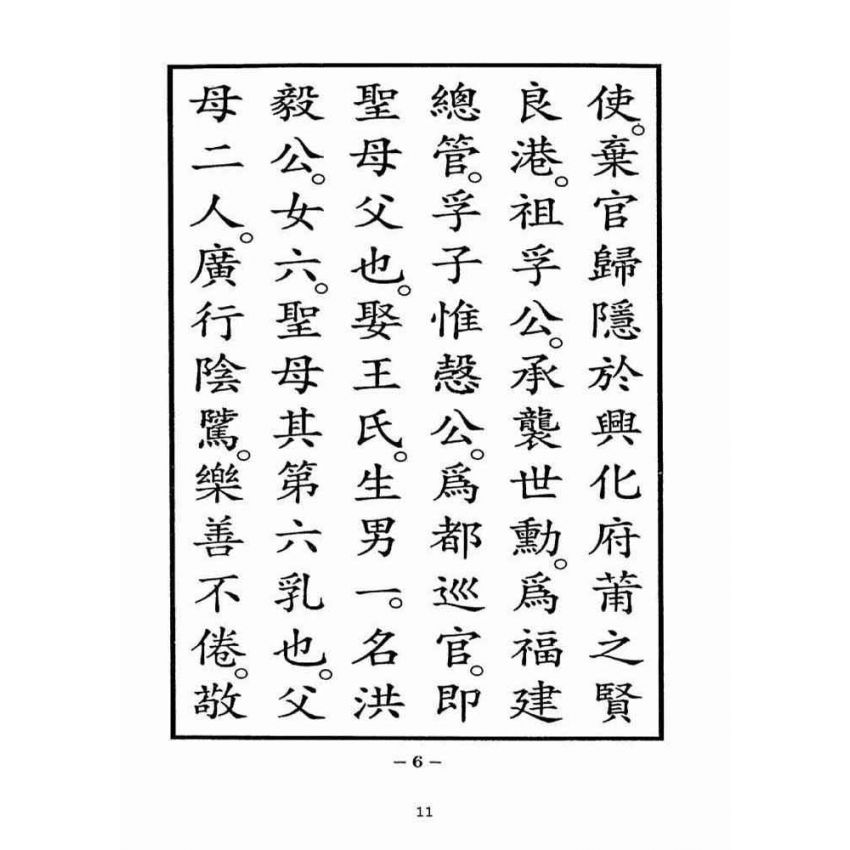 使。棄官歸隱於興化府莆之賢
良港。祖孚公。承襲世勳。爲福建
總管。孚子惟慤公。爲都巡官。即
聖母父也。娶王氏。生男一。名洪
毅公。女六。聖母其第六乳也。父
母二人。廣行陰騭。樂善不倦。敬
－6－
11